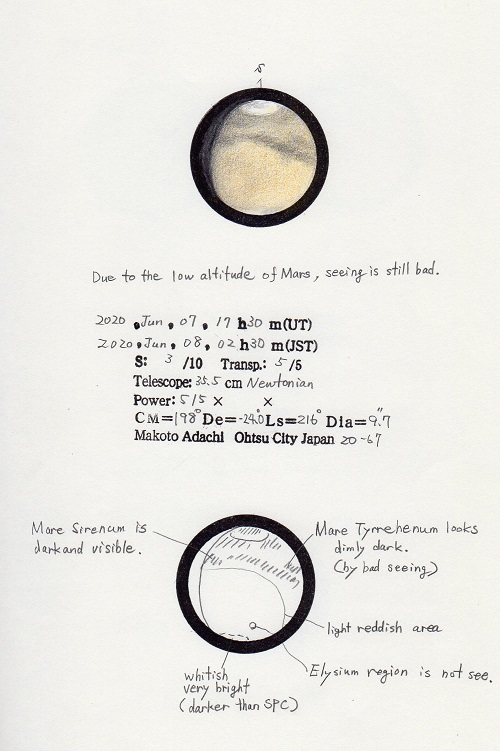 S
Due to the low altitude of Mars, seeing is still bad.
2020, Jun, 07, 17 h30 m(UT)
2020, Jun, 08, 02 h30 m(JST)
S: 3 /10 Transp.: 5 /5
Telescope: 35.5 cm Newtonian
Power: 515 × ×
CM=198° De=-24.0 Ls=216° Dia=9.7"
Makoto Adachi Ohtsu City Japan 20-67
Mare Sirenum is
dark and visible.
Mare Tyrrehenum looks
dimly dark.
(by bad seeing)
light reddish area
Elysium region is not see.
whitish
very bright
(darker than SPC)